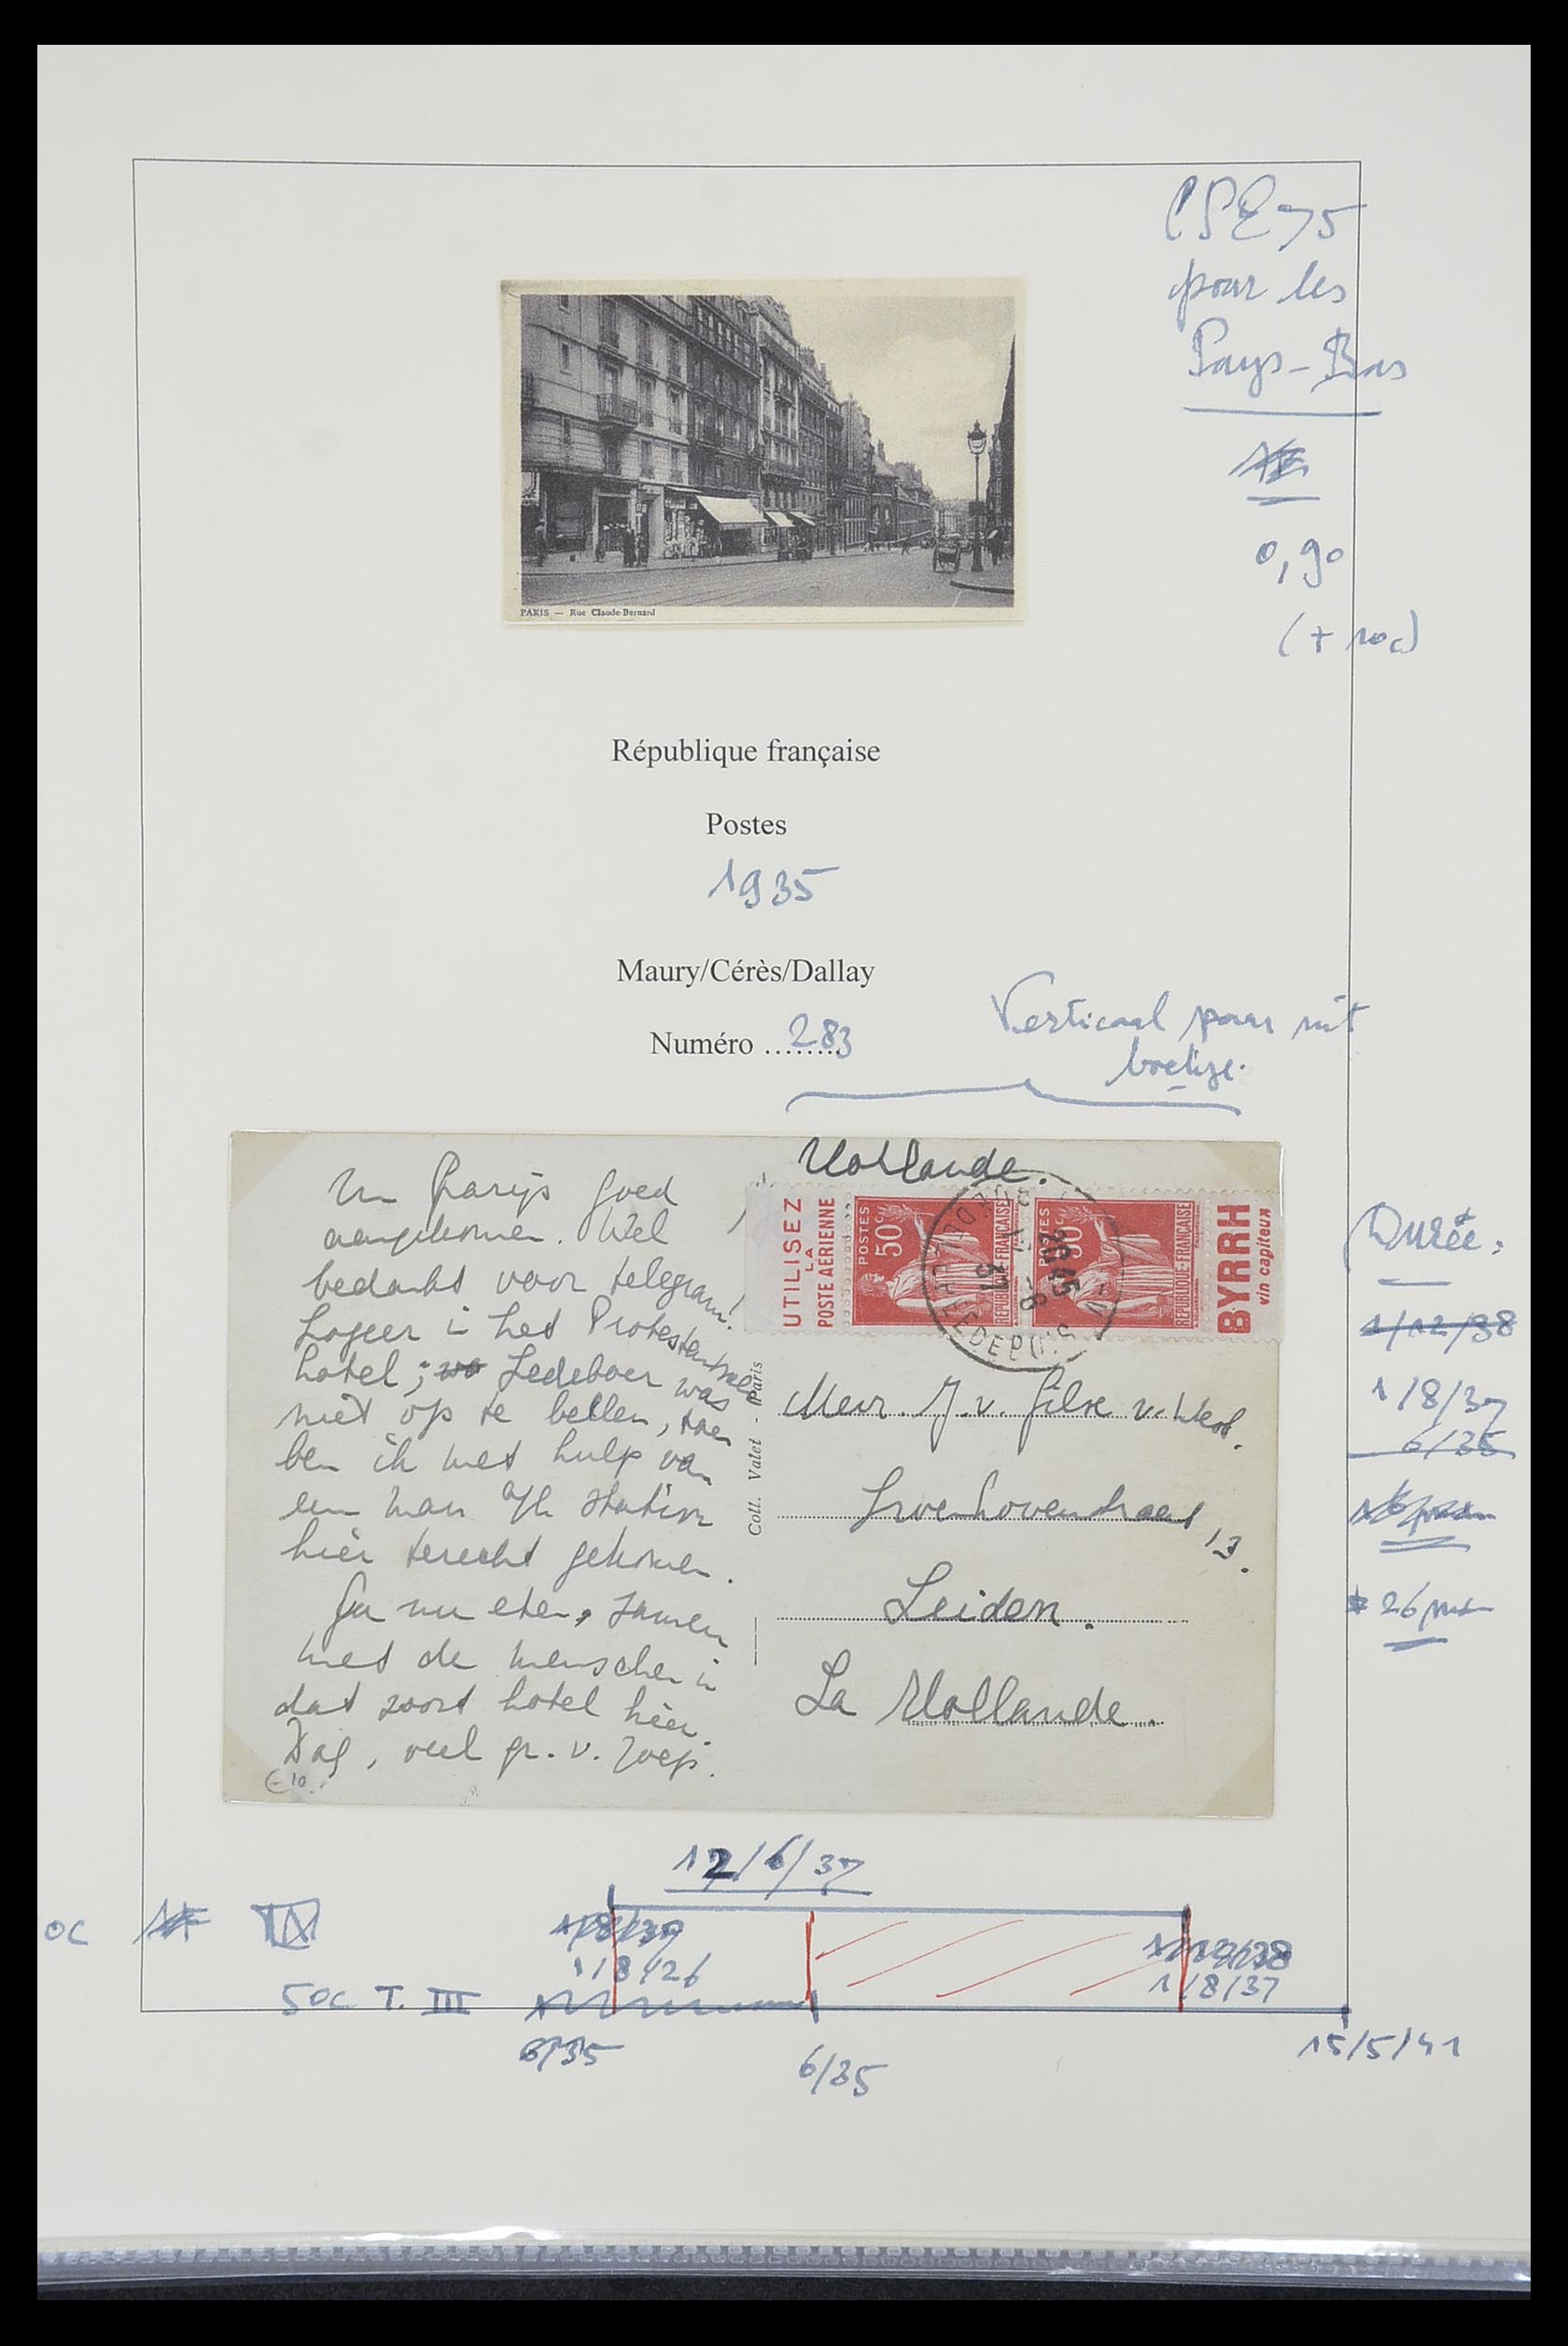 pour les
Pays-Bas
0,90
(+ 10c)
PARIS — Rue Claude-Bernard
République française
Postes
1935
Maury/Cérès/Dallay
Numéro ........ 283
Verticaal paar uit
boekje.
Hollande.
UTILISEZ
LA
POSTE AÉRIENNE
POSTES
50c
REPUBLIQUE FRANÇAISE
POSTES
50c
REPUBLIQUE FRANÇAISE
BYRRH
vin capiteux
20 45
37
In Parijs goed
aangekomen. Wel
bedankt voor telegram!
Logeer in het Protestantse
hotel; Ledeboer was
niet op te bellen, toen
ben ik met hulp van
een man a/h station
hier terecht gekomen.
Ga nu eten, samen
met de menschen in
dat soort hotel hier.
Dag, veel gr. v.
Coll. Valet - Paris
J. v.
13.
Leiden.
La Hollande.
Durée:
1/12/38
1/8/37
6/35
26
12/6/37
1/8/26
1/8/37
50c T. III
6/35
6/35
15/5/41